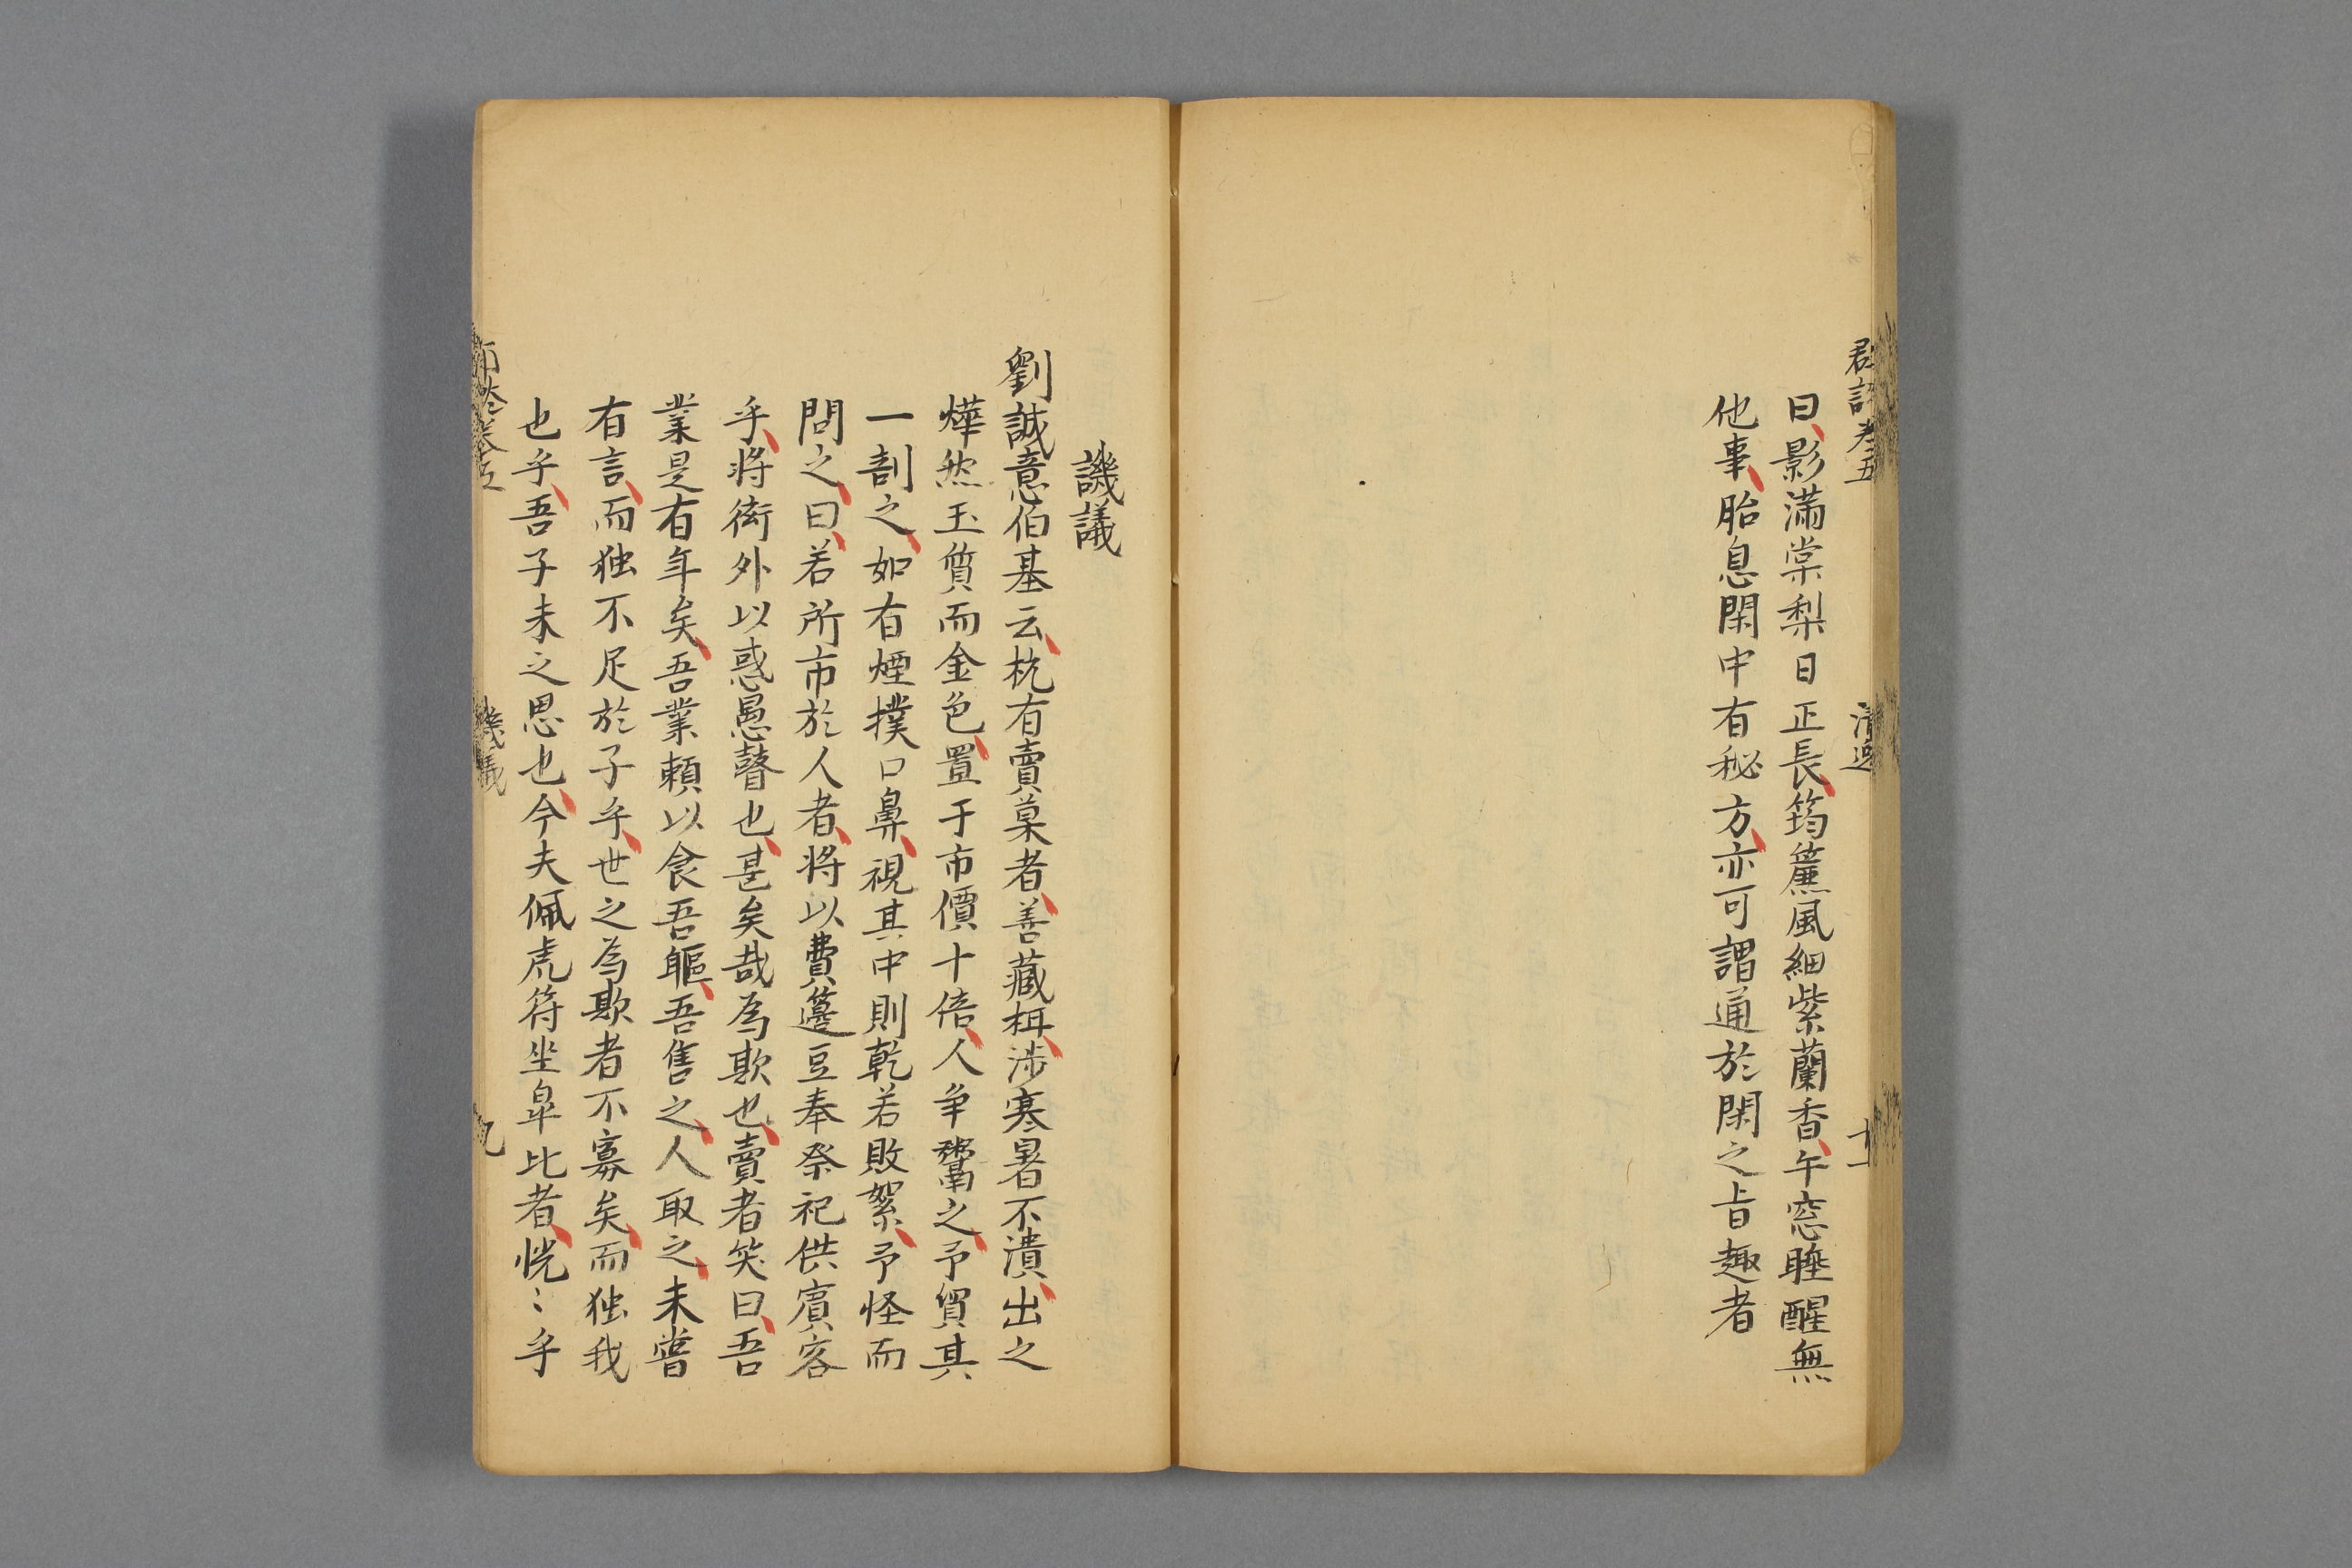 清逸
曰影滿棠梨日正長筠簾風細紫蘭香午窓睡醒無
他事胎息閑中有秘方亦可謂通於閑之旨趣者
譏議
劉誠意伯基云杭有賣菓者善藏柑涉寒暑不潰出之
燁然玉質而金色置于市價十倍人争鬻之予貿其
一剖之如有煙撲口鼻視其中則乾若敗絮予怪而
問之曰若所市於人者将以費籩豆奉祭祀供賓客
乎将衒外以惑愚瞽也甚矣哉為欺也賣者笑曰吾
業是有年矣吾業頼以食吾軀吾售之人取之未嘗
有言而独不足於子乎世之為欺者不寡矣而独我
也乎吾子未之思也今夫佩虎符坐皐比者恍〻乎
譏議
九